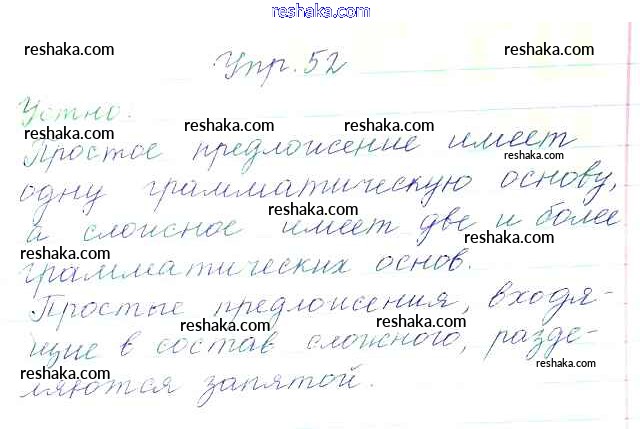 reshaka.com
reshaka.com
reshaka.com
Упр. 52
Устно:
reshaka.com
reshaka.com
reshaka.com
Простое предложение имеет
reshaka.com
одну грамматическую основу,
reshaka.com
а сложное имеет две и более
reshaka.com
reshaka.com
грамматических основ.
Простые предложения, входя-
reshaka.com
reshaka.com
щие в состав сложного, разде-
reshaka.com
reshaka.com
ляются запятой.